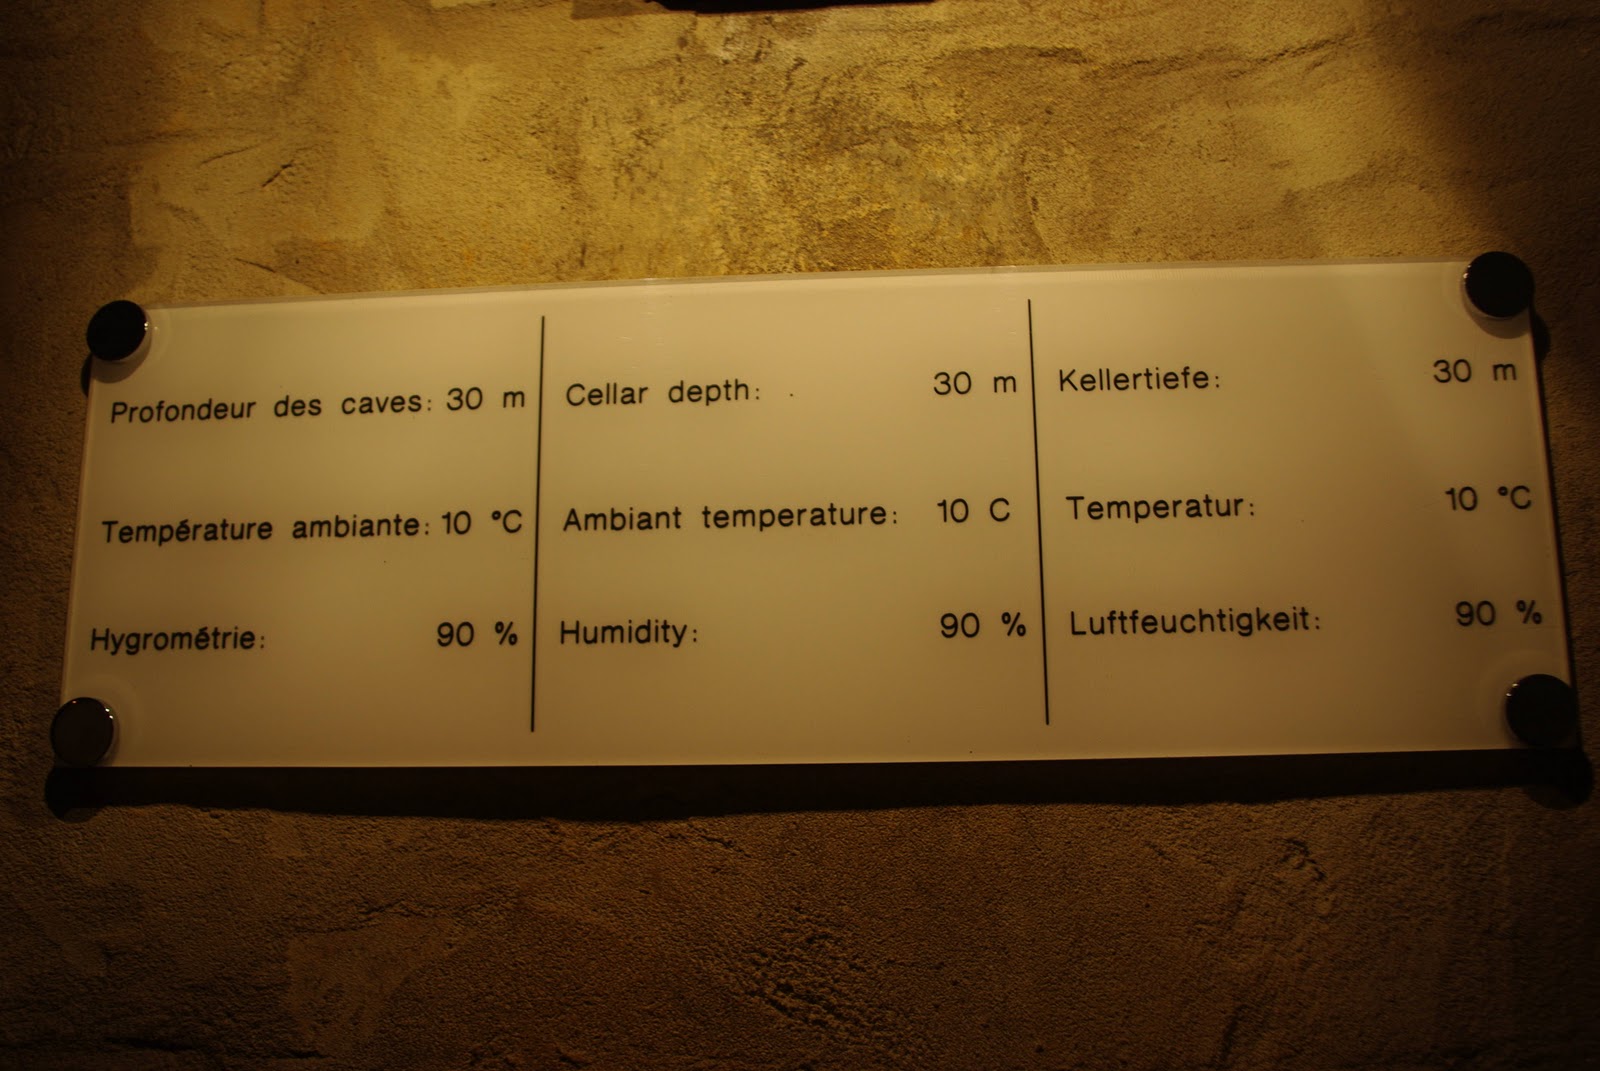 Profondeur des caves: 30 m
Température ambiante: 10 °C
Hygrométrie: 90 %
Cellar depth: 30 m
Ambiant temperature: 10 C
Humidity: 90 %
Kellertiefe: 30 m
Temperatur: 10 °C
Luftfeuchtigkeit: 90 %